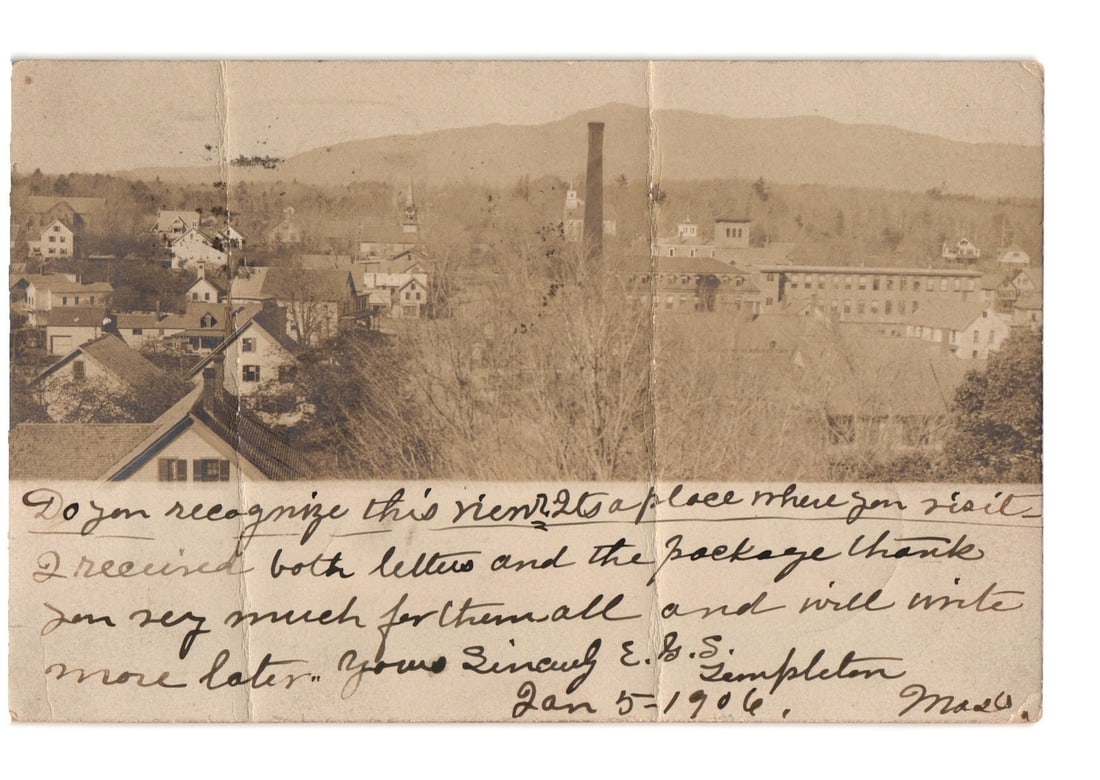 Do you recognize this view? Its a place where you visit-
I received both letters and the package thank
you very much for them all and will write
more later. Yours Sincerely E. G. S.
Templeton
Jan 5-1906. Mass.